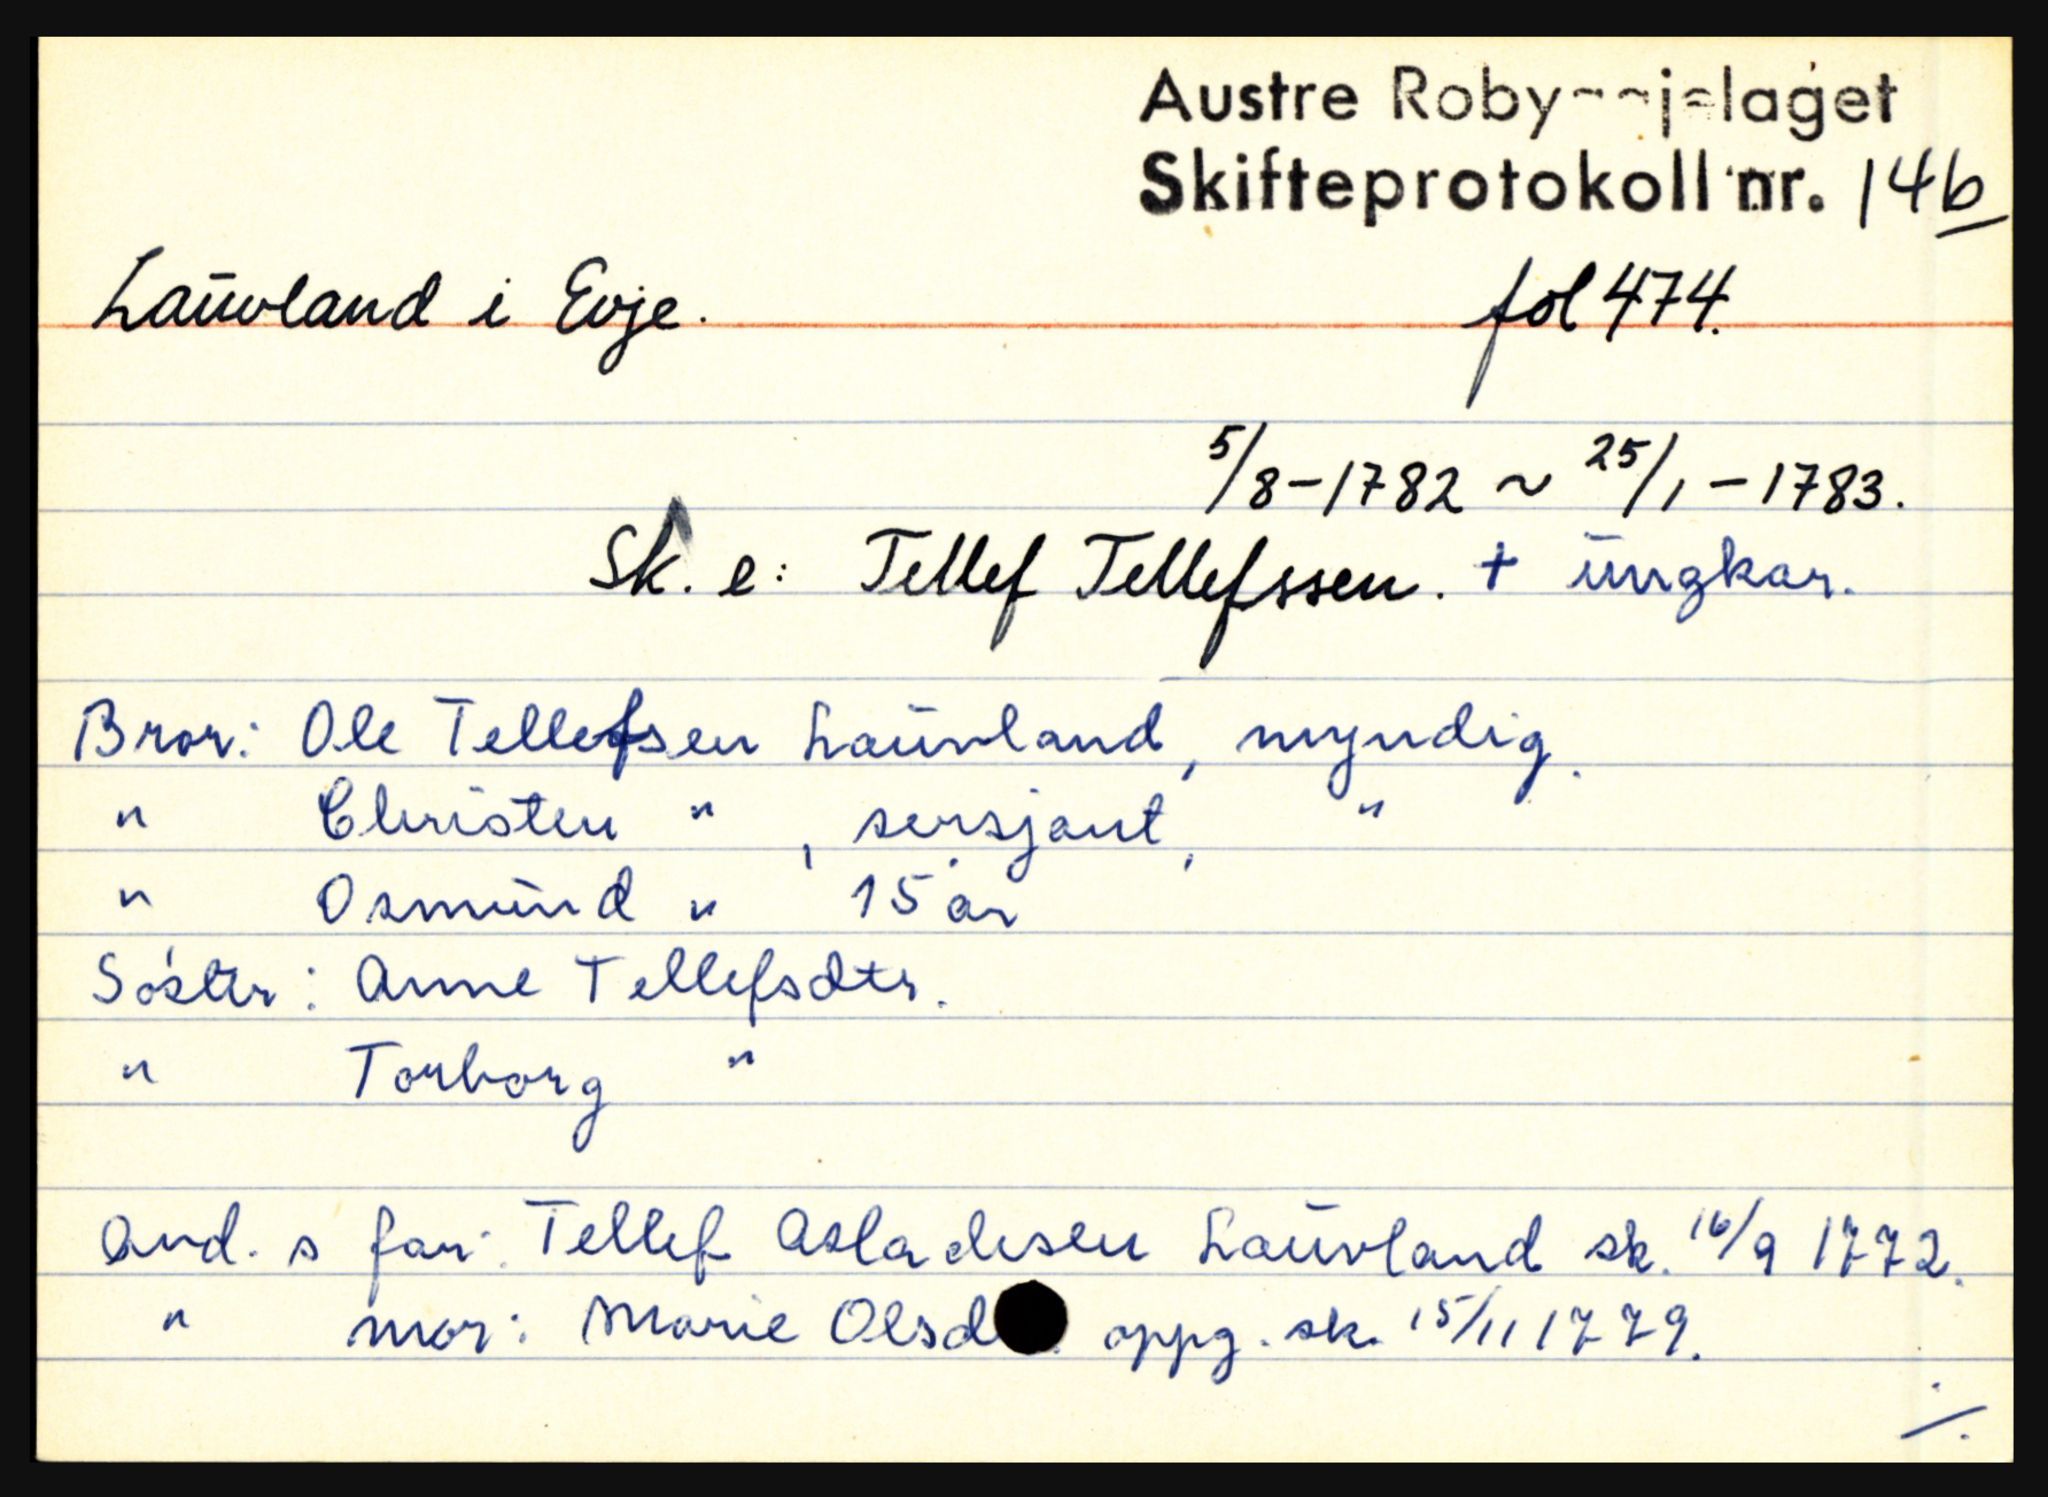 Austre Robyggjelaget
Skifteprotokoll nr. 14b
Lauvland i Evje. fol 474.
5/8-1782 ~ 25/1-1783.
Sk. e: Tellef Tellefssen. + ungkar.
Bror: Ole Tellefsen Lauvland, myndig.
" Christen " , sersjant, "
" Osmund " 15 år
Søster: Anne Tellefsdtr.
" Torborg "
avd. s far: Tellef Aslachsen Lauvland sk. 16/9 1772.
" mor: Marie Olsd oppg. sk. 15/11 1779.
./.